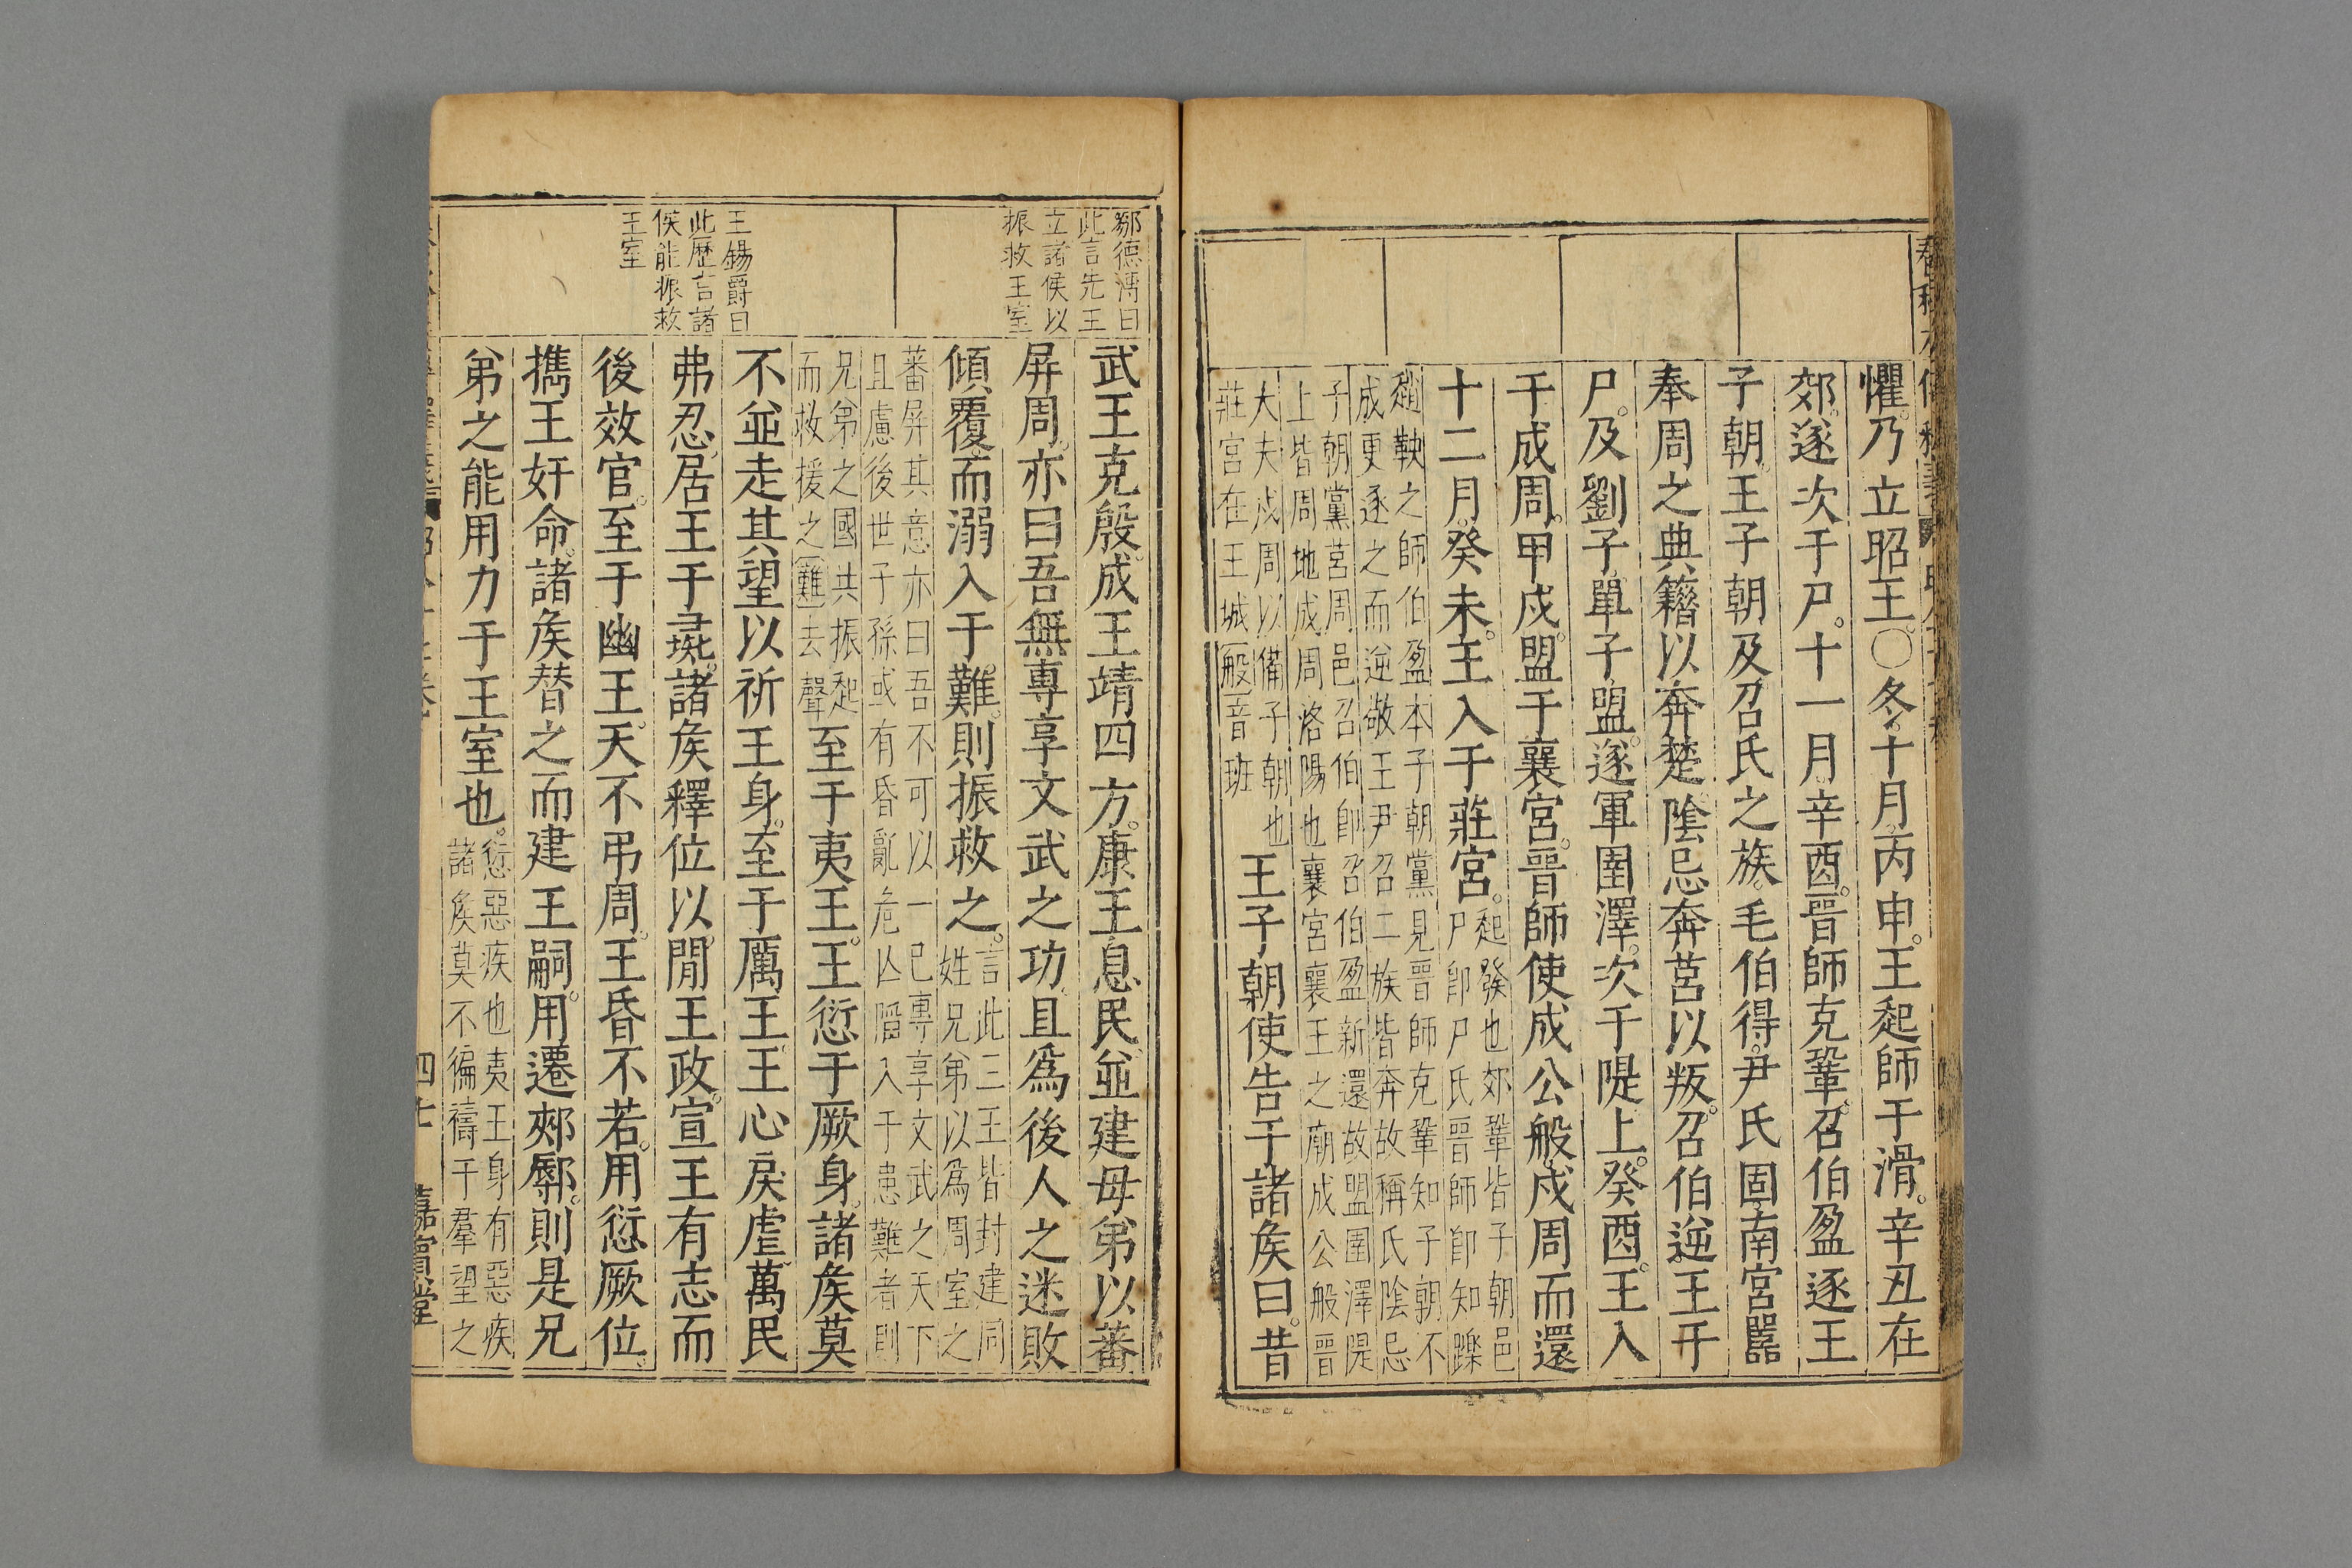 懼。乃立昭王。〇冬十月丙申。王起師于滑。辛丑在
郊。遂次于尸。十一月辛酉。晉師克鞏。召伯盈逐王
子朝。王子朝及召氏之族。毛伯得。尹氏固。南宮嚚
奉周之典籍以奔楚。陰忌奔莒以叛。召伯逆王于
尸。及劉子。單子盟。遂軍圉澤。次于隄上。癸酉。王入
于成周。甲戌。盟于襄宮。晉師使成公般。戍周而還
十二月。癸未。王入于莊宮。
起發也郊鞏皆子朝邑
尸卽尸氏晉師卽知躒
趙鞅之師伯盈本子朝黨見晉師克鞏知子朝不
成更逐之而逆敬王尹召二族皆奔故稱氏陰忌
子朝黨莒周邑召伯卽召伯盈新還故盟圉澤隄
上皆周地成周洛陽也襄宮襄王之廟成公般晉
大夫戍周以備子朝也
莊宮在王城般音班
王子朝使告于諸矦曰。昔
鄒德溥曰
此言先王
立諸侯以
振救王室
武王克殷。成王靖四方。康王息民。並建母弟。以蕃
屏周。亦曰吾無專享文武之功。且爲後人之迷敗
傾覆而溺入于難。則振救之。
言此三王皆封建同
姓兄弟以爲周室之
蕃屏其意亦曰吾不可以一已專享文武之天下
且慮後世子孫或有昏亂危亾陷入于患難者則
兄弟之國共振起
而救援之難去聲
至于夷王。王愆于厥身。諸矦莫
王錫爵曰
此歷言諸
侯能振救
王室
不並走其望以祈王身。至于厲王。王心戾虐。萬民
弗忍。居王于彘。諸矦釋位以閒王政。宣王有志而
後效官。至于幽王。天不弔周。王昏不若。用愆厥位。
攜王奸命。諸矦替之而建王嗣。用遷郟鄏。則是兄
弟之能用力于王室也。
愆惡疾也夷王身有惡疾
諸矦莫不徧禱于羣望之
四七
嘉賓堂